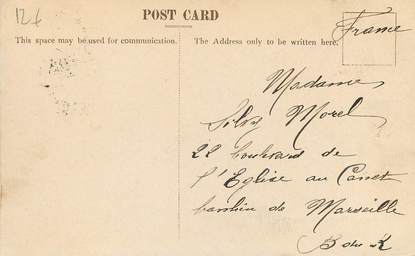 12f
POST CARD
This space may be used for communication.
The Address only to be written here.
France
Madame
Silvy Morel
22 boulevard de
l'Eglise au Canet
banlieu de Marseille
B du R